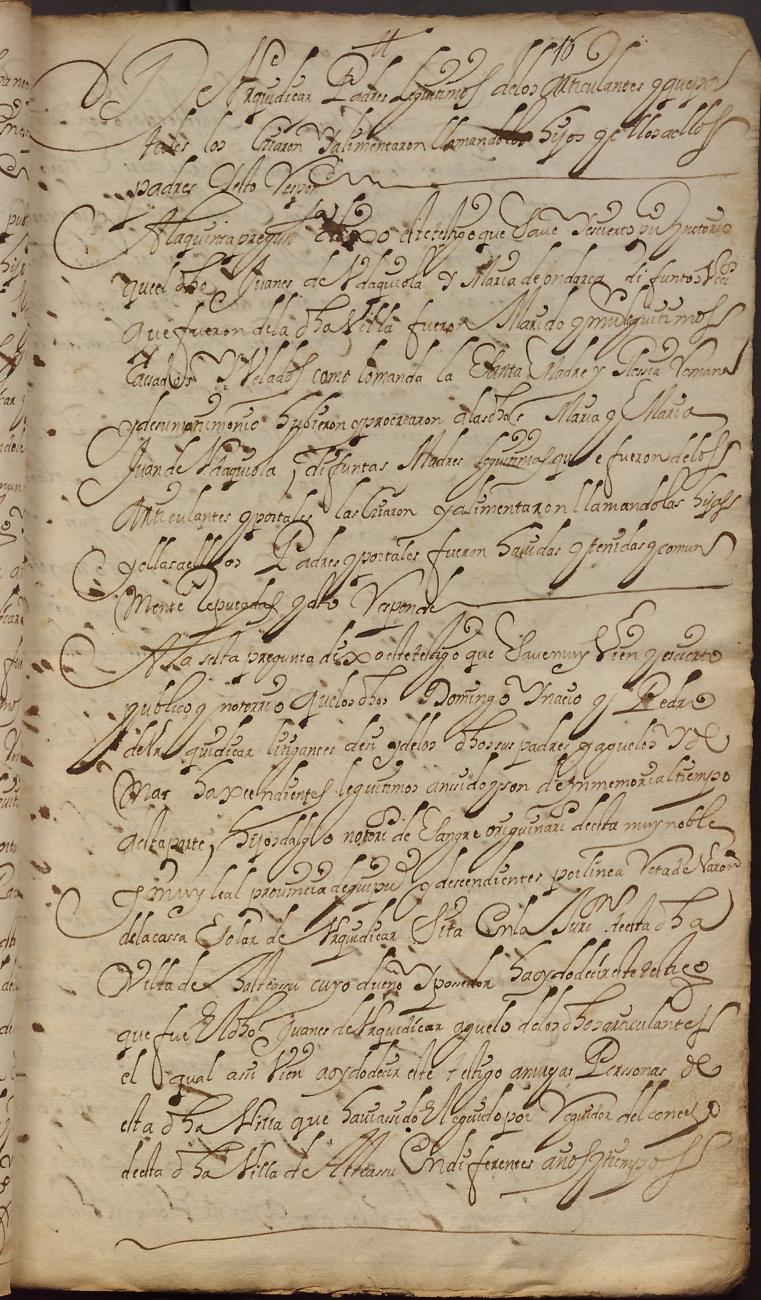 16
De Urquidicar Padres legitimos delos Articulantes y que por
tales los Criaron y alimentaron llamandolos hijos y ellos aellos
padres y esto Respon
Ala quinta pregun dixo este testigo que save es cierto pu y notorio
que el dho Juanes de Vdaquiola y Maria de ondarca difuntos Veci
que fueron dela dha Villa fueron Marido y mu legitimos
Casados y Velados como lo manda la Santa Madre Yglesia Romana
y de su matrimonio hubieron y procrearon alas dhas Maria y Maria
Juan de Vdaquiola difuntas Madres legitimas que fueron delos
Articulantes y por tales las Criaron y alimentaron llamandolas hijas
y ellas aellos Padres y por tales fueron havidas y tenidas y comun
Mente Reputadas y esto Responde
Ala sesta pregunta dixo este testigo que save muy bien y es cierto
publico y notorio que los dhos Domingo Ynacio y Pedro
de Urquidicar litigantes de si y delos dhos sus padres y aguelos y de
Mas legitimos an sido y son de ynmemorial tiempo
a esta parte hijosdalgo notori de sangre originari de esta muy noble
y muy leal provincia de guipu y descendientes por linea Reta de Varon
dela cassa solar de Urquidicar sita en la Juri de esta dha
Villa de cuyo dueño y poseedor ha oydo decir este testigo
que fue el dho Juanes de Urquidicar aguelo delos dhos articulantes
el qual asi bien a oydo decir este testigo a muchas Personas de
esta dha Villa que havia sido Elegido por Regidor del concejo
de esta dha Villa de En diferentes años y tiempos